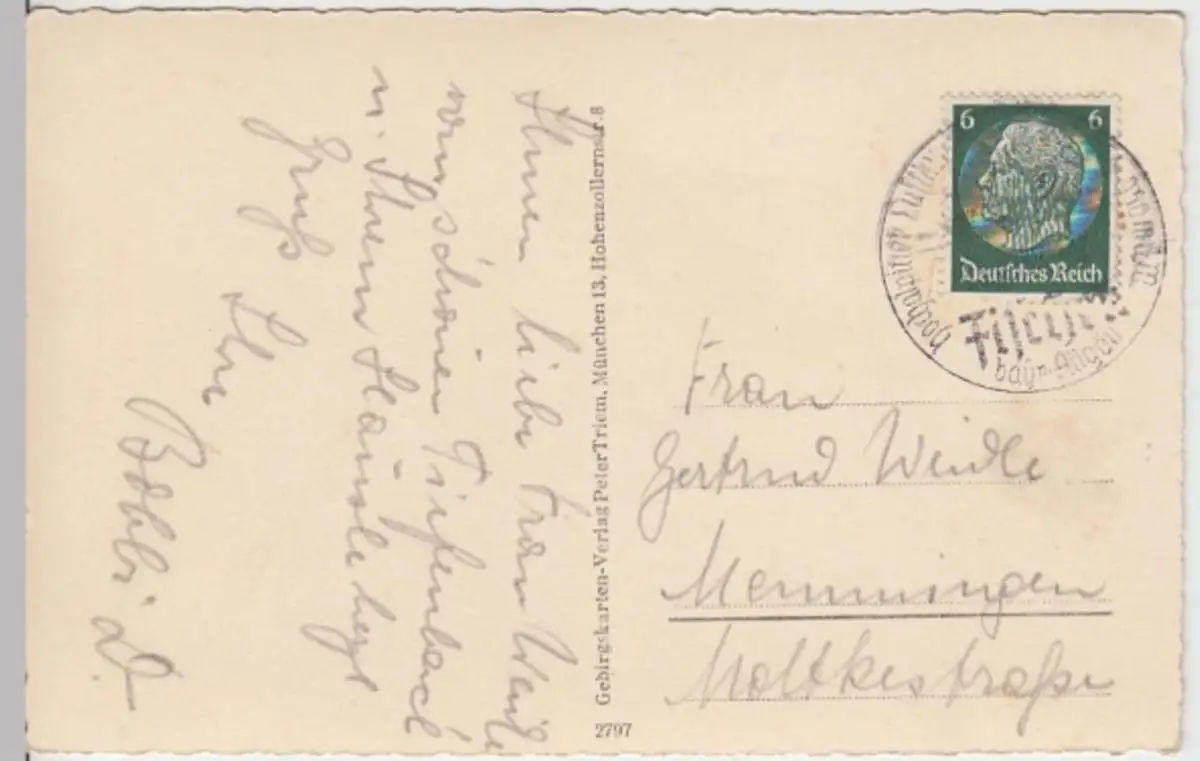 Ihnen liebe Frau Weidle
vom schönen Tiefenbach
u. Ihrem Häusle herzl
Gruß
Ihre
Bobbi D.
Gebirgskarten-Verlag Peter Triem, München 13, Hohenzollernstr. 8
2797
6 6
Deutsches Reich
Fischen
bayr. Allgäu
Frau
Gertrud Weidle
Memmingen
Moltkestraße